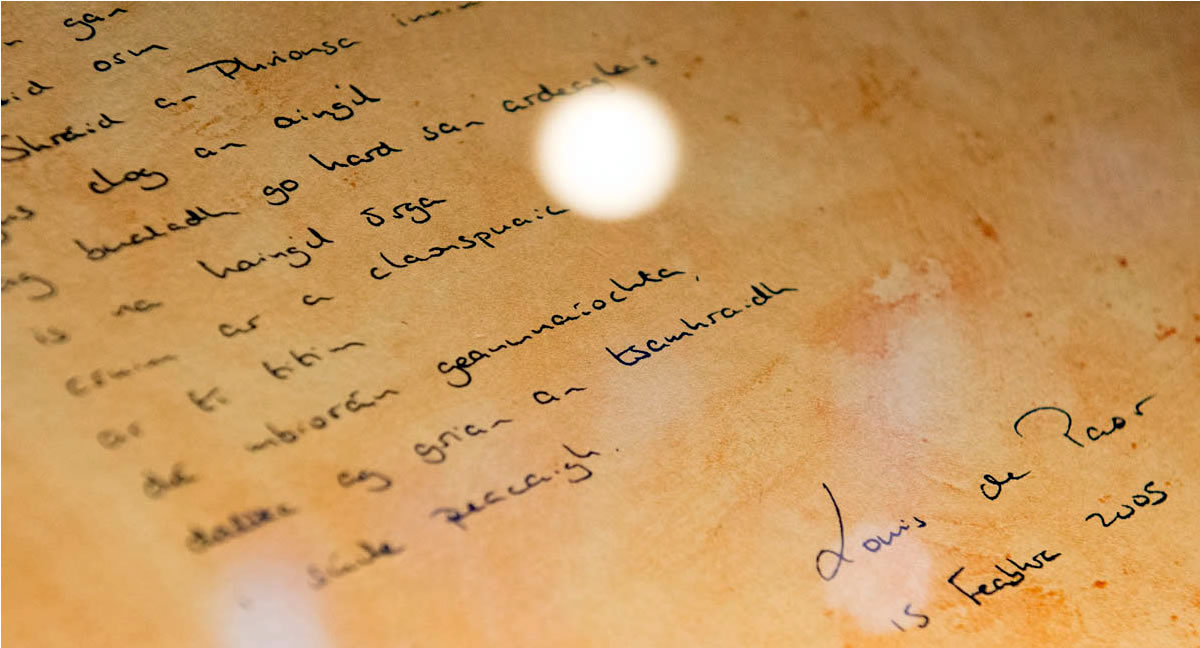 gan
orm
Shráid an Phrionsa
clog an aingil
ag bualadh go hard san
is na haingil órga
ar a claonspuaic
ar tí titim
dá mbiorán geanmnaíochta,
dallta ag grian an tsamhraidh
súile peacaigh.
Louis de Paor
15 Feabhra 2005